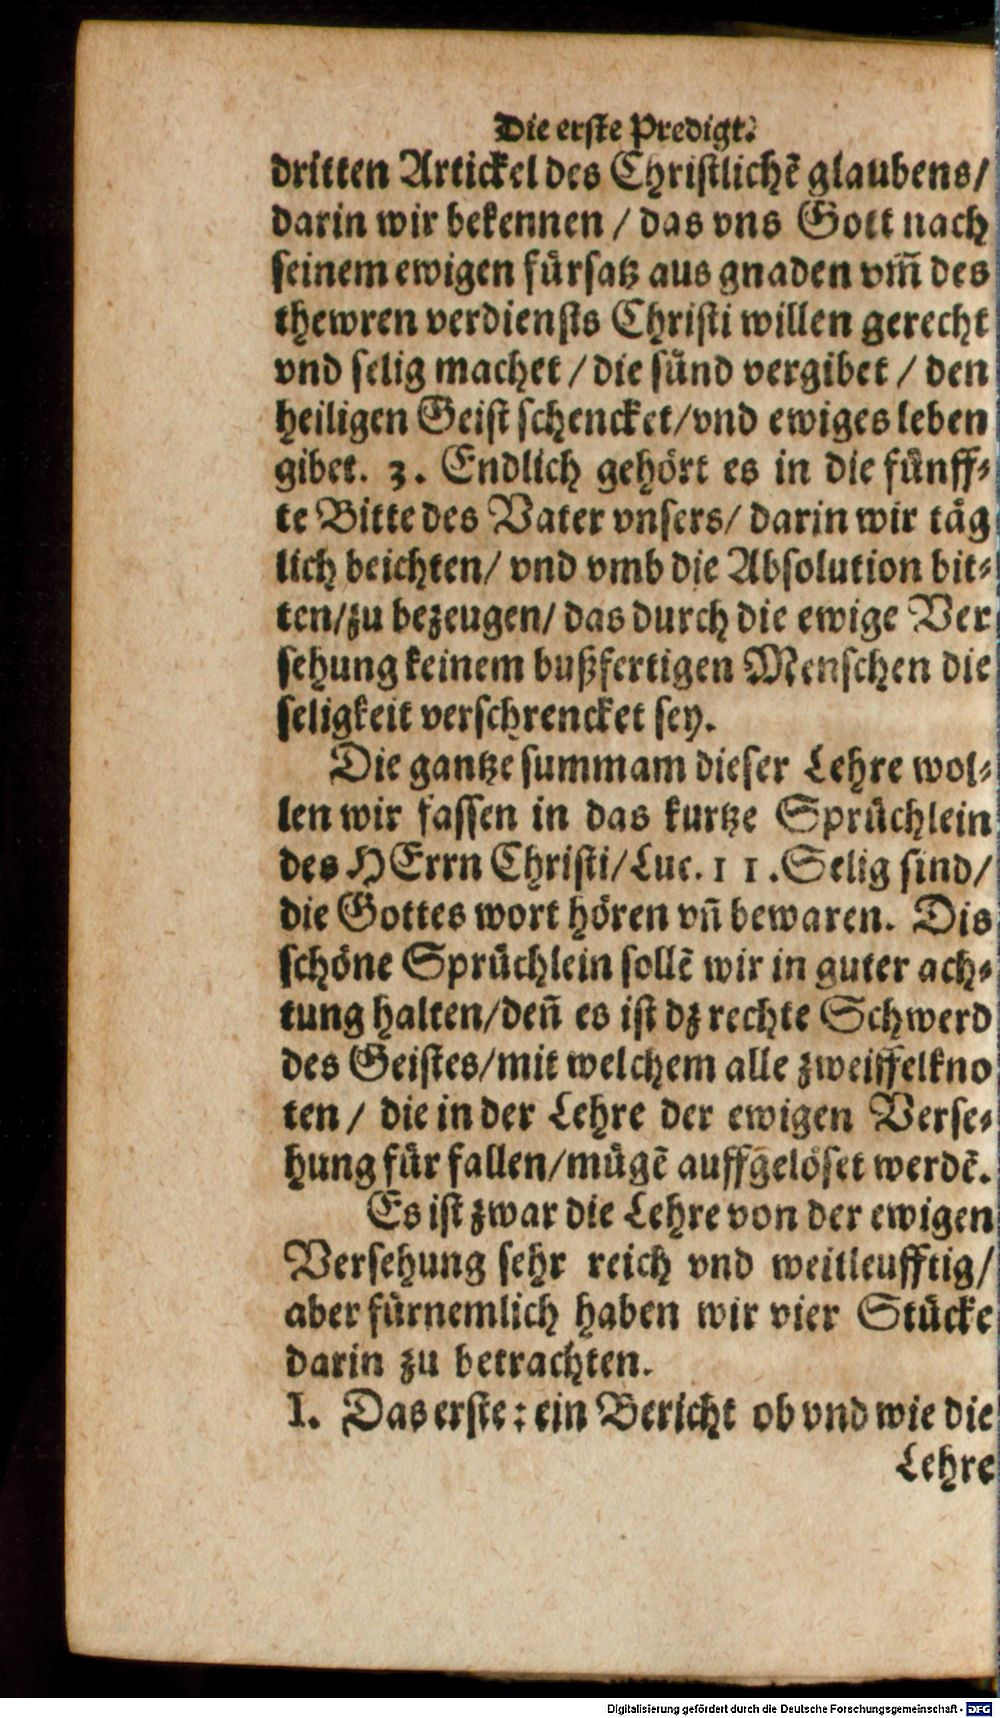 Die erste Predigt.
dritten Artickel des Christlichẽ glaubens/
darin wir bekennen / das vns Gott nach
seinem ewigen fürsatz aus gnaden vm̃ des
thewren verdiensts Christi willen gerecht
vnd selig machet / die sünd vergibet / den
heiligen Geist schencket/vnd ewiges leben
gibet. 3. Endlich gehört es in die fünff-
te Bitte des Vater vnsers/ darin wir täg
lich beichten/ vnd vmb die Absolution bit-
ten/zu bezeugen/ das durch die ewige Ver
sehung keinem bußfertigen Menschen die
seligkeit verschrencket sey.
Die gantze summam dieser Lehre wol-
len wir fassen in das kurtze Sprüchlein
des HErrn Christi/Luc. 11. Selig sind/
die Gottes wort hören vñ bewaren. Dis
schöne Sprüchlein sollẽ wir in guter ach-
tung halten/deñ es ist dz rechte Schwerd
des Geistes/mit welchem alle zweiffelkno
ten / die in der Lehre der ewigen Verse-
hung für fallen/mügẽ auffgelöset werdẽ.
Es ist zwar die Lehre von der ewigen
Versehung sehr reich vnd weitleufftig/
aber fürnemlich haben wir vier Stücke
darin zu betrachten.
I. Das erste: ein Bericht ob vnd wie die
Lehre
Digitalisierung gefördert durch die Deutsche Forschungsgemeinschaft - DFG